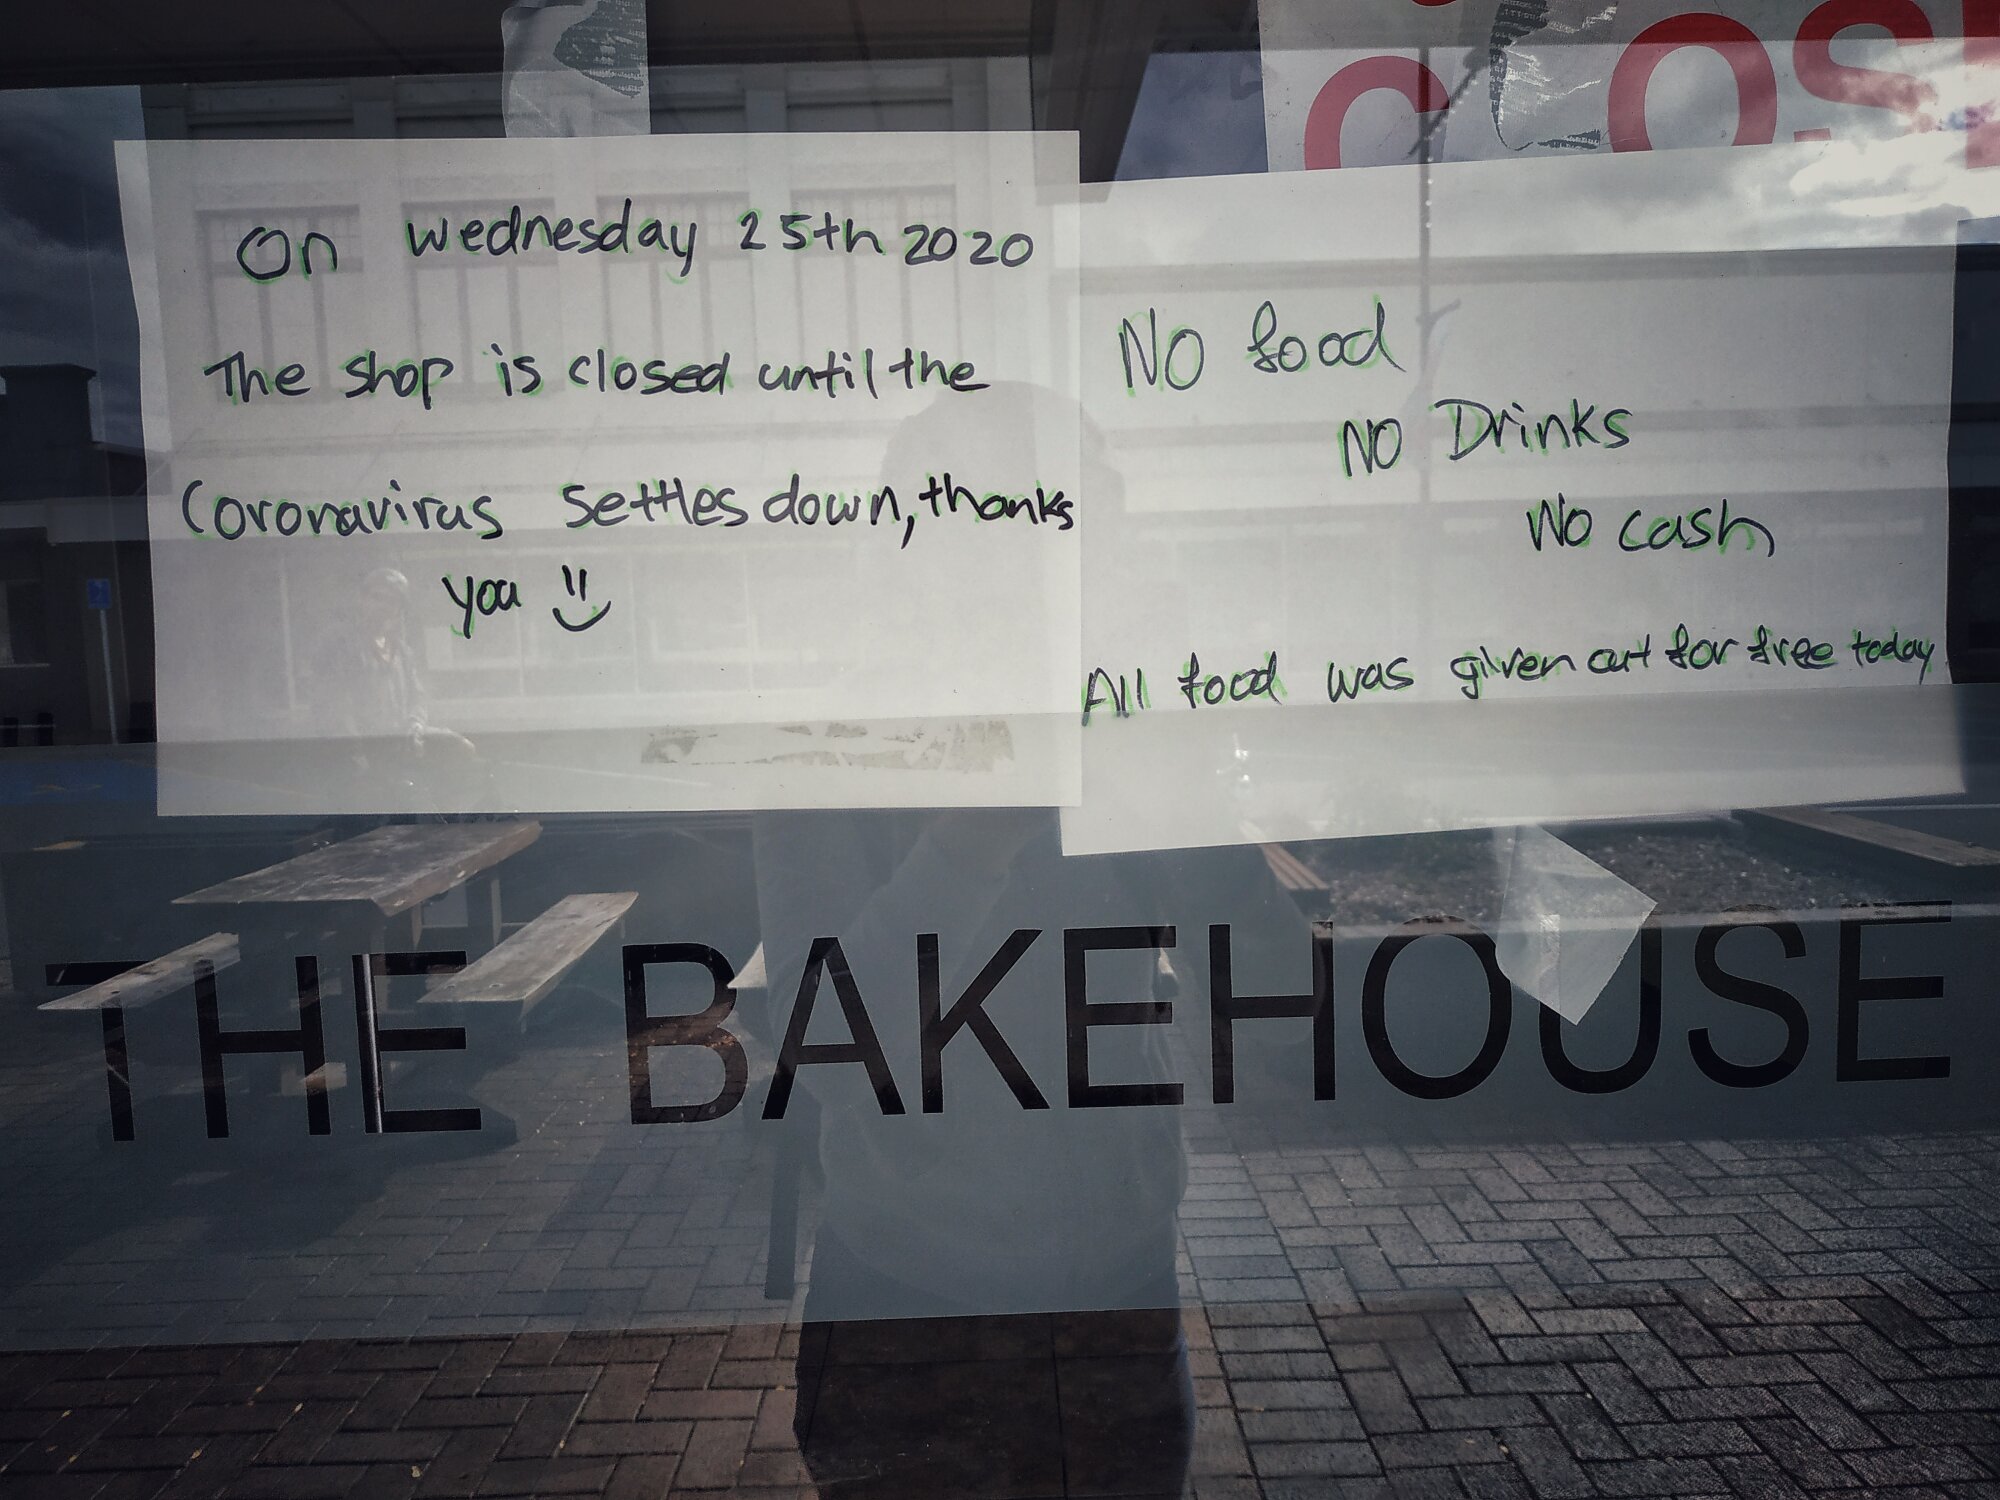 CLOSE
On Wednesday 25th 2020
The shop is closed until the
Coronavirus settles down, thanks
you
No food
No Drinks
No cash
All food was given out for free today
THE BAKEHOUSE